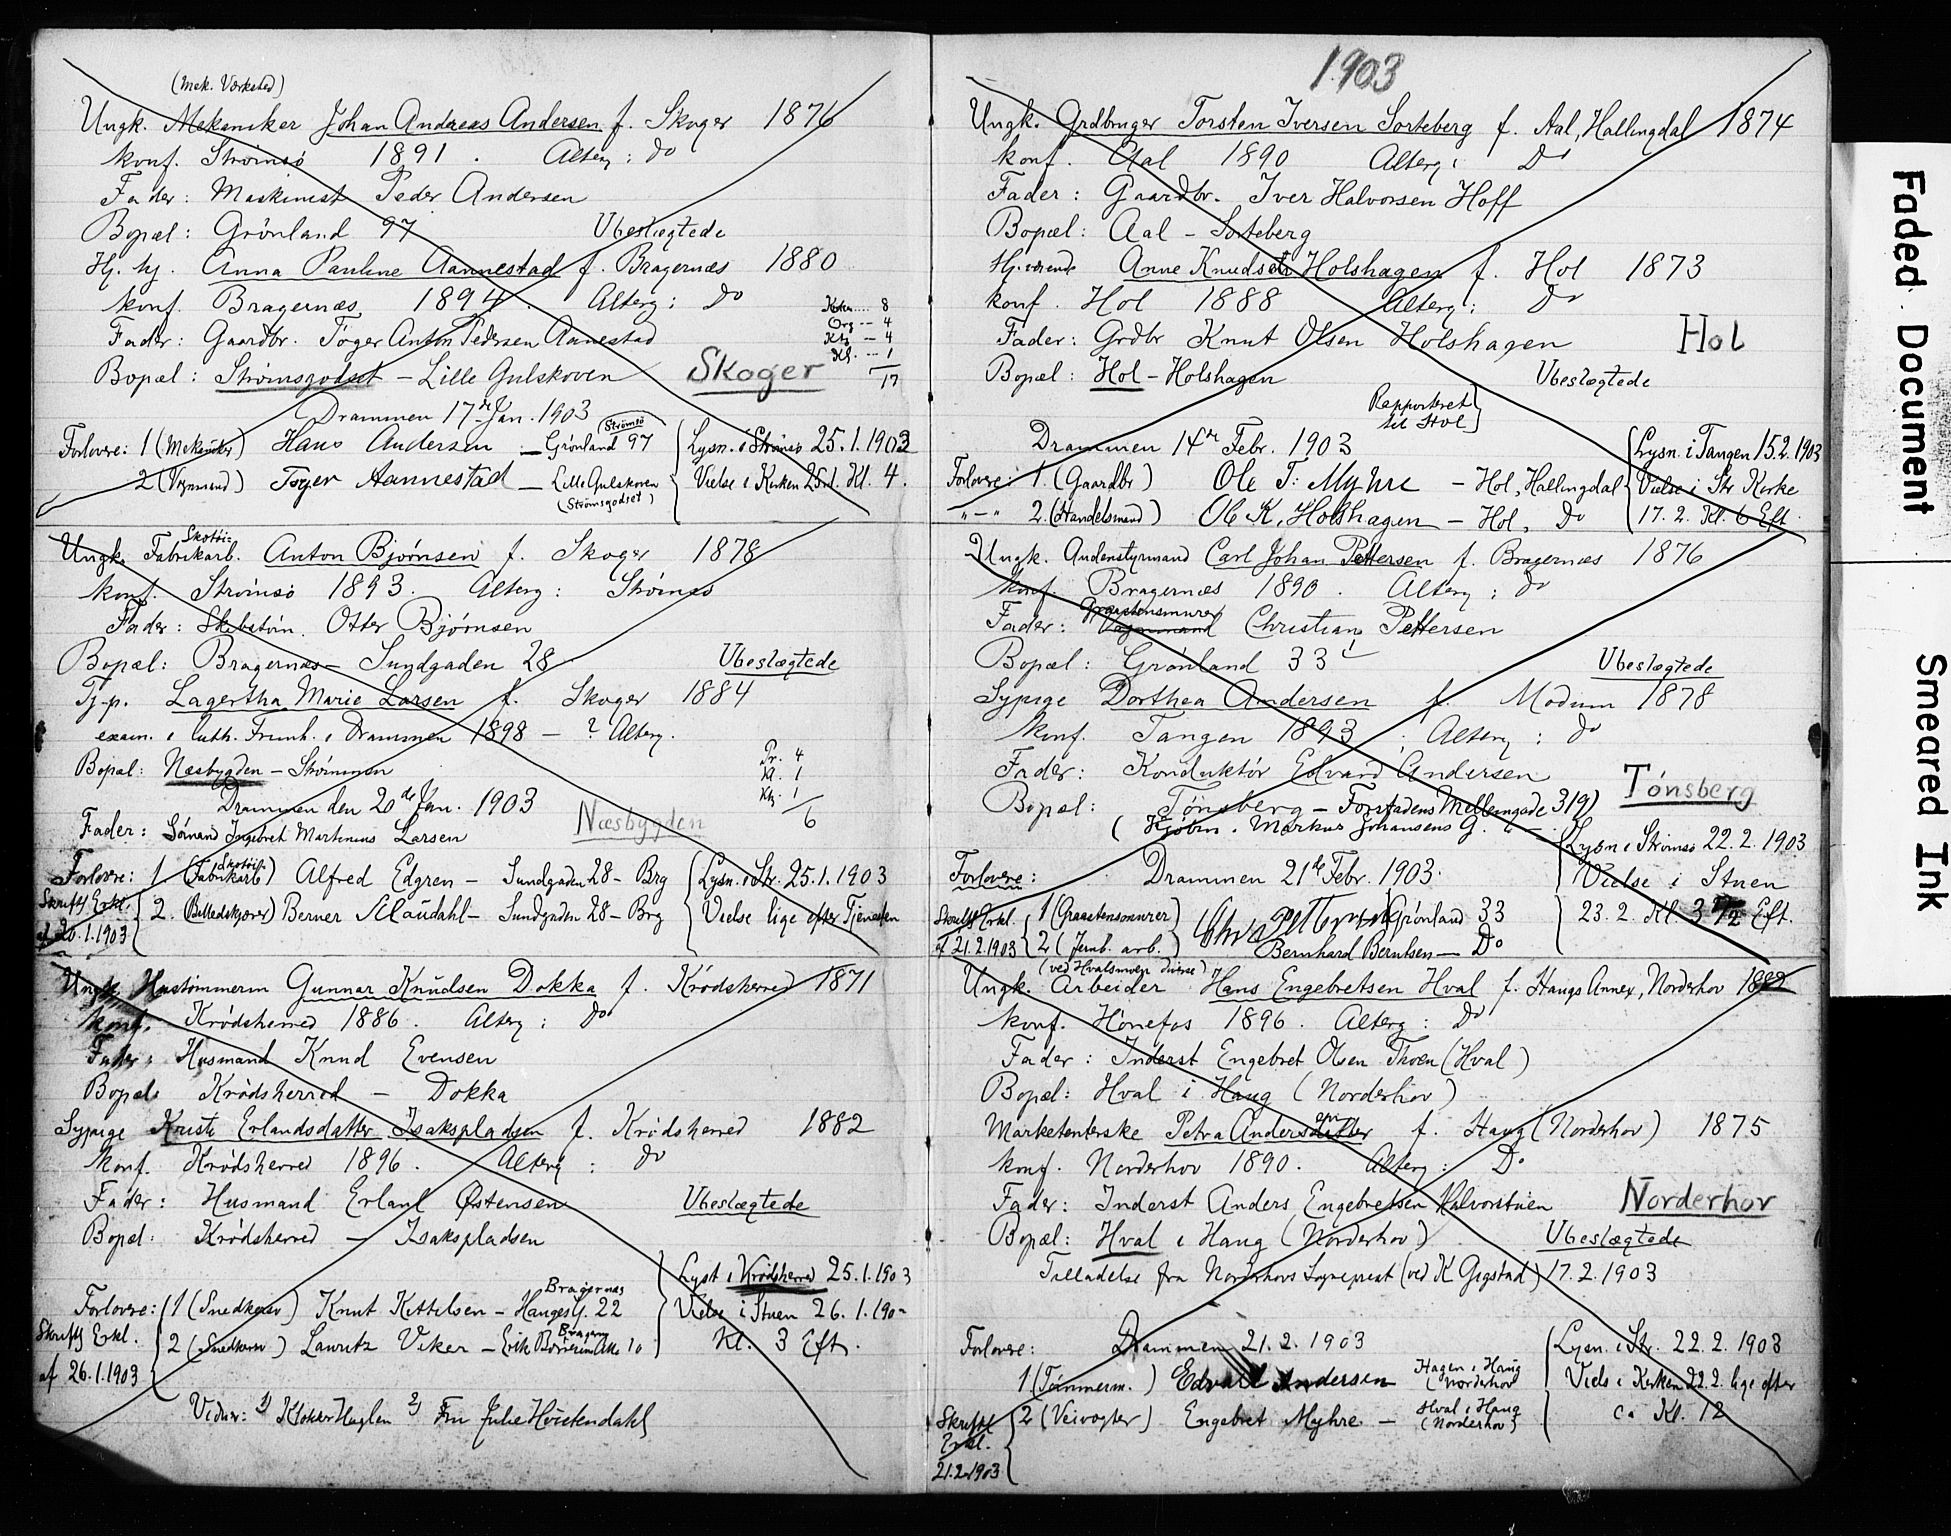 (Mek. Værksted)
Ungk. Mekaniker Johan Andreas Andersen f. Skoger 1876
konf. Strømsø 1891. Alterg: do
Fader: Maskinist Peder Andersen
Bopæl: Grønland 97 Ubeslægtede
Hj. hj. Anna Pauline Aannestad f. Bragernæs 1880
konf. Bragernæs 1894. Alterg: do
Fader: Gaardbr. Tøger Anton Pedersen Aanestad
Bopæl: Strømsgodset - Lille Gulskoven Skoger
8
Org -- 4
Klj -- 4
Kl. -- 1
17
Drammen 17de Jan. 1903
Forlovere: 1 (Mekaniker) Hans Andersen - Grønland 97 (Strømsø)
2 (Vognmand) Tøger Aannestad - Lille Gulskoven (Strømsgodset)
Lysn. i Strømsø 25.1.1903
Vielse i Kirken 25.1. Kl. 4.
Skotøi-
Ungk. Fabrikarb. Anton Bjørnsen f. Skoger 1878
konf. Strømsø 1893. Alterg: Strømsø
Fader: Skibstøm. Otter Bjørnsen
Bopæl: Bragernæs - Sundgaden 28 Ubeslægtede
Tj-p. Lagertha Marie Larsen f. Skoger 1884
exam. i luth. Frimh. i Drammen 1898 - ? Alterg.
Bopæl: Næsbygden - Strømmen
Pr. 4
Kl. 1
Klj. 1
6
Drammen den 20de Jan. 1903 Næsbygden
Fader: Sømand Ingebret Martinius Larsen
Forlovere: 1. (Skotøifabrikarb.) Alfred Edgren - Sundgaden 28 - Brg
Skriftl Erkl. af 20.1.1903
2. (Billedskjærer) Berner Maudahl - Sundgaden 28 - Brg
Lysn. i Str. 25.1.1903
Vielse lige efter Tjenesten
Ungk. Hustømmerm Gunnar Knudsen Dokka f. Krødsherred 1871
konf. Krødsherred 1886. Alterg: do
Fader: Husmand Knud Evensen
Bopæl: Krødsherred - Dokka
Sypige Kristi Erlandsdatter Isakspladsen f. Krødsherred 1882
konf. Krødsherred 1896. Alterg: do
Fader: Husmand Erland Østensen Ubeslægtede
Bopæl: Krødsherred - Isakspladsen
Forlovere: 1 (Snedkersv) Knut Kittilsen - Hauges G. 22 Bragernæs
Skriftlg Erkl. af 26.1.1903
2 (Snedkersv) Lauritz Viker - Erik Børresens Alle 10 Bragern
Lyst i Krødsherred 25.1.1903
Vielse i Stuen 26.1.190-
Kl. 3 Eft.
Vidner: 1) Klokker Huglen 2) Fru Julie Høistendahl
1903
Ungk. Grdbruger Torsten Iversen Sorteberg f. Aal, Hallingdal 1874
konf. Aal 1890 Alterg: Do
Fader: Gaardbr. Iver Halvorsen Hoff
Bopæl: Aal - Sorteberg
Hj.værende Anne Knudsdt Holshagen f. Hol 1873
konf. Hol 1888 Alterg: Do
Fader: Grdbr Knut Olsen Holshagen Hol
Bopæl: Hol - Holshagen Ubeslægtede
Rapporteret til Hol
Drammen 14de Febr. 1903
Forlovere: 1. (Gaardbr) Ole T. Myhre - Hol, Hallingdal
" - " 2. (Handelsmand) Ole K. Holshagen - Hol, Do
Lysn. i Tangen 15.2.1903
Vielse i Str Kirke
17.2. Kl. 6 Eft.
Ungk. Andenstyrmand Carl Johan Pettersen f. Bragernæs 1876
konf. Bragernæs 1890. Alterg: do
Fader: Vognmand Graastensmurer Christian Pettersen
Bopæl: Grønland 33 Ubeslægtede
Sypige Dorthea Andersen f. Modum 1878
konf. Tangen 1893. Alterg: do
Fader: Konduktør Edvard Andersen
Bopæl: Tønsberg - Forstadens Mellemgade 319) Tønsberg
(Kjøbm. Markus Johansens G.
Forlovere: Drammen 21de Febr. 1903.
Skriftl Erkl. af 21.2.1903
1 (Graastensmurer) Chr. Pettersen Grønland 33
2 (Jernb. arb.) Bernhard Berntsen - Do
Lysn i Strømsø 22.2.1903
Vielse i Stuen
23.2. Kl. 3 1/2 Eft.
(ved Hvalsmoen)
Ungk. Arbeider Hans Engebretsen Hval f. Haugs Annex, Norderhov 1882
konf. Hønefos 1896. Alterg: Do
Fader: Inderst Engebret Olsen Thoen (Hval)
Bopæl: Hval i Haug (Norderhov)
Marketenterske Petra Andersen f. Haug (Norderhov) 1875
konf. Norderhov 1890. Alterg: Do
Fader: Inderst Anders Engebretsen Halvorstuen Norderhov
Bopæl: Hval i Haug (Norderhov) Ubeslægtede
Tilladelse fra Norderhovs Sognepræst (ved K Gigstad) 17.2.1903
Forlovere: Drammen 21.2.1903
1 (Tømmerm.) Edvart Andersen Hagen i Haug (Norderhov
2 (Veivogter) Engebret Myhre - Hval i Haug (Norderhov)
Skriftl Erkl. 21.2.1903
Lysn. i Str. 22.2.1903
Viels i Kirken 22.2. lige efter
ca Kl. 12
Faded Document
Smeared Ink